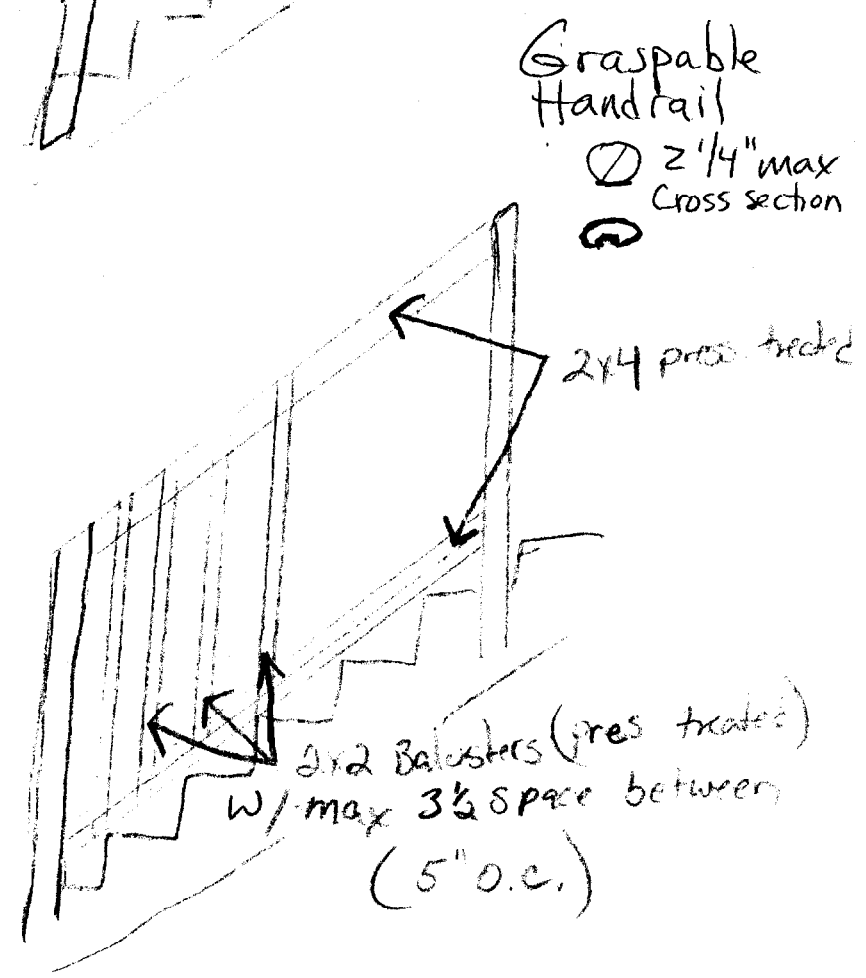 Graspable
Handrail
2 1/4" max
Cross section
2x4 press treated
2x2 Balusters (pres treated)
W/ max 3½ space between
(5" O.C.)